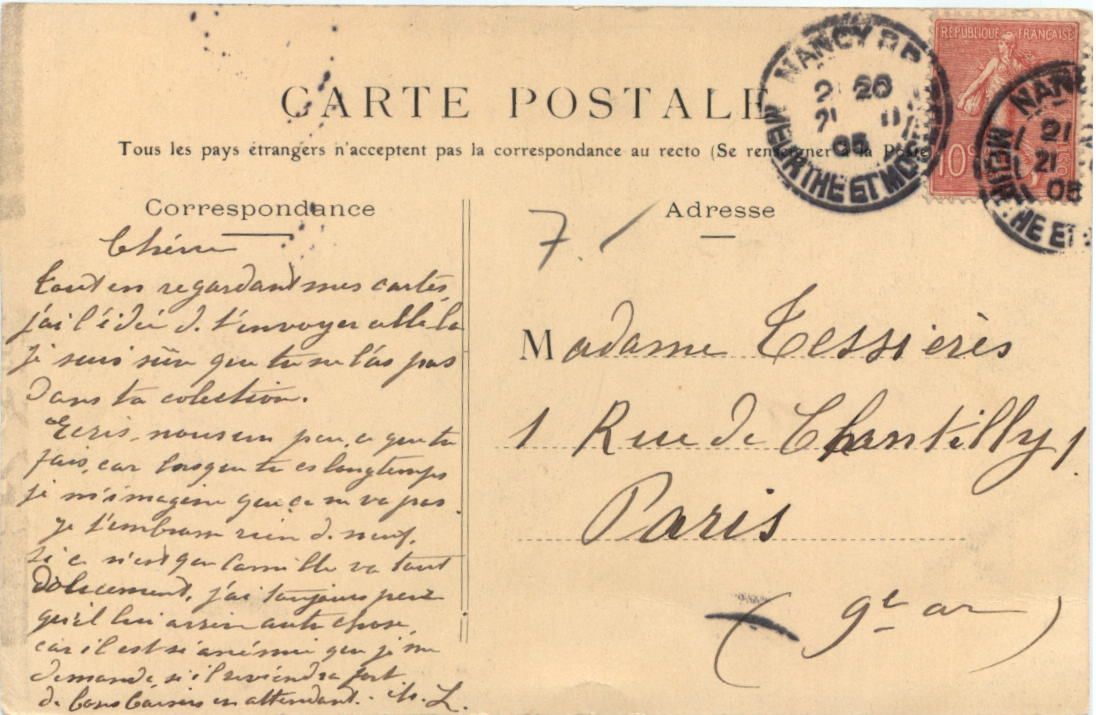 CARTE POSTALE
Tous les pays étrangers n'acceptent pas la correspondance au recto (Se renseigner à la Poste
Correspondance
Adresse
RÉPUBLIQUE FRANÇAISE
10c
NANCY R.P.
20
05
MEURTHE ET MOSELLE
NAN
21
21
05
ME HE ET
7.
Chérie
tout en regardant mes cartes
j'ai l'idée d. t'envoyer celle là
je suis sûr que tu ne l'as pas
dans ta colection.
Ecris nous un peu, ce que tu
fais, car lorsque tu es longtemps
je m'imagine que ça ne va pas.
je t'embrasse rien d. neuf,
si ce n'est que Camille va tout
doucement, j'ai toujours peur
qu'il lui arrive autre chose,
car il est si anémié que je me
demande s'il reviendra fort
de bons baisers en attendant. L.
Madame Tessières
1 Rue de Chantilly 1
Paris
(9e ar)